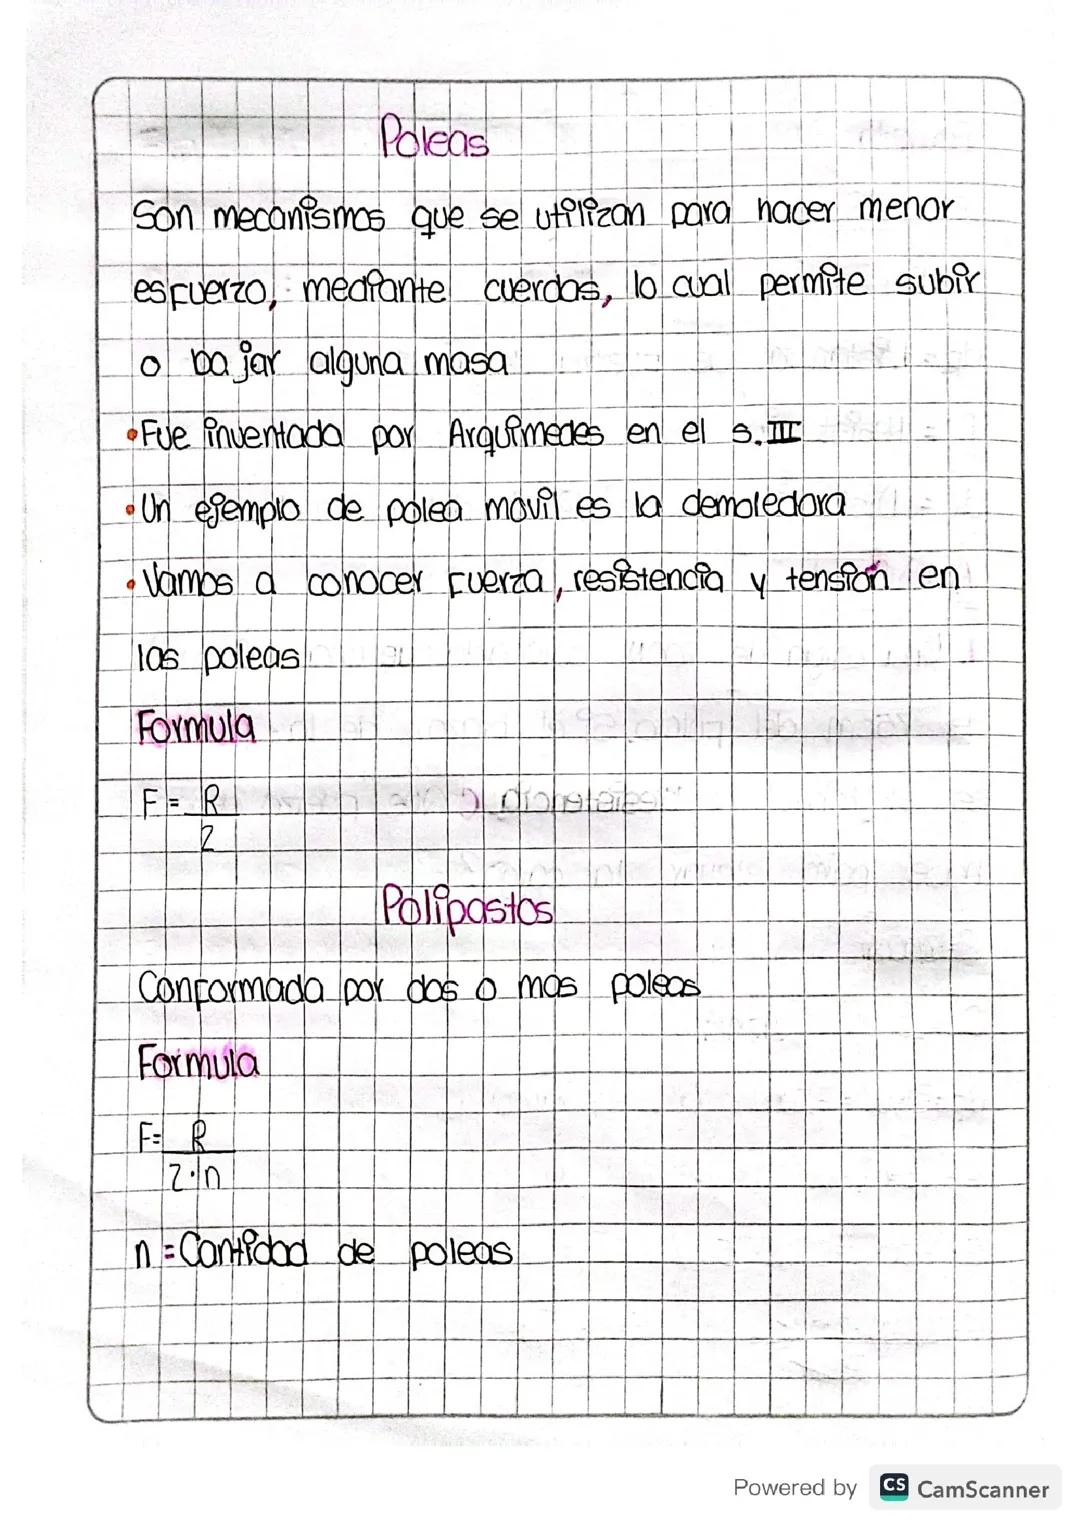 Poleas
Son mecanismos que se utilizan para hacer menor
esfuerzo, mediante cuerdas, lo cual permite subir
o bajar alguna masa
•Fue inventada por Arquimedes en el s.III
•Un ejemplo de polea movil es la demoledora
•Vamos a conocer fuerza, resistencia y tensión en
las poleas
Formula
F = R
2
Polipastos
Conformada por dos o mas poleas
Formula
F= R
2·n
n = Cantidad de poleas
Powered by CS CamScanner